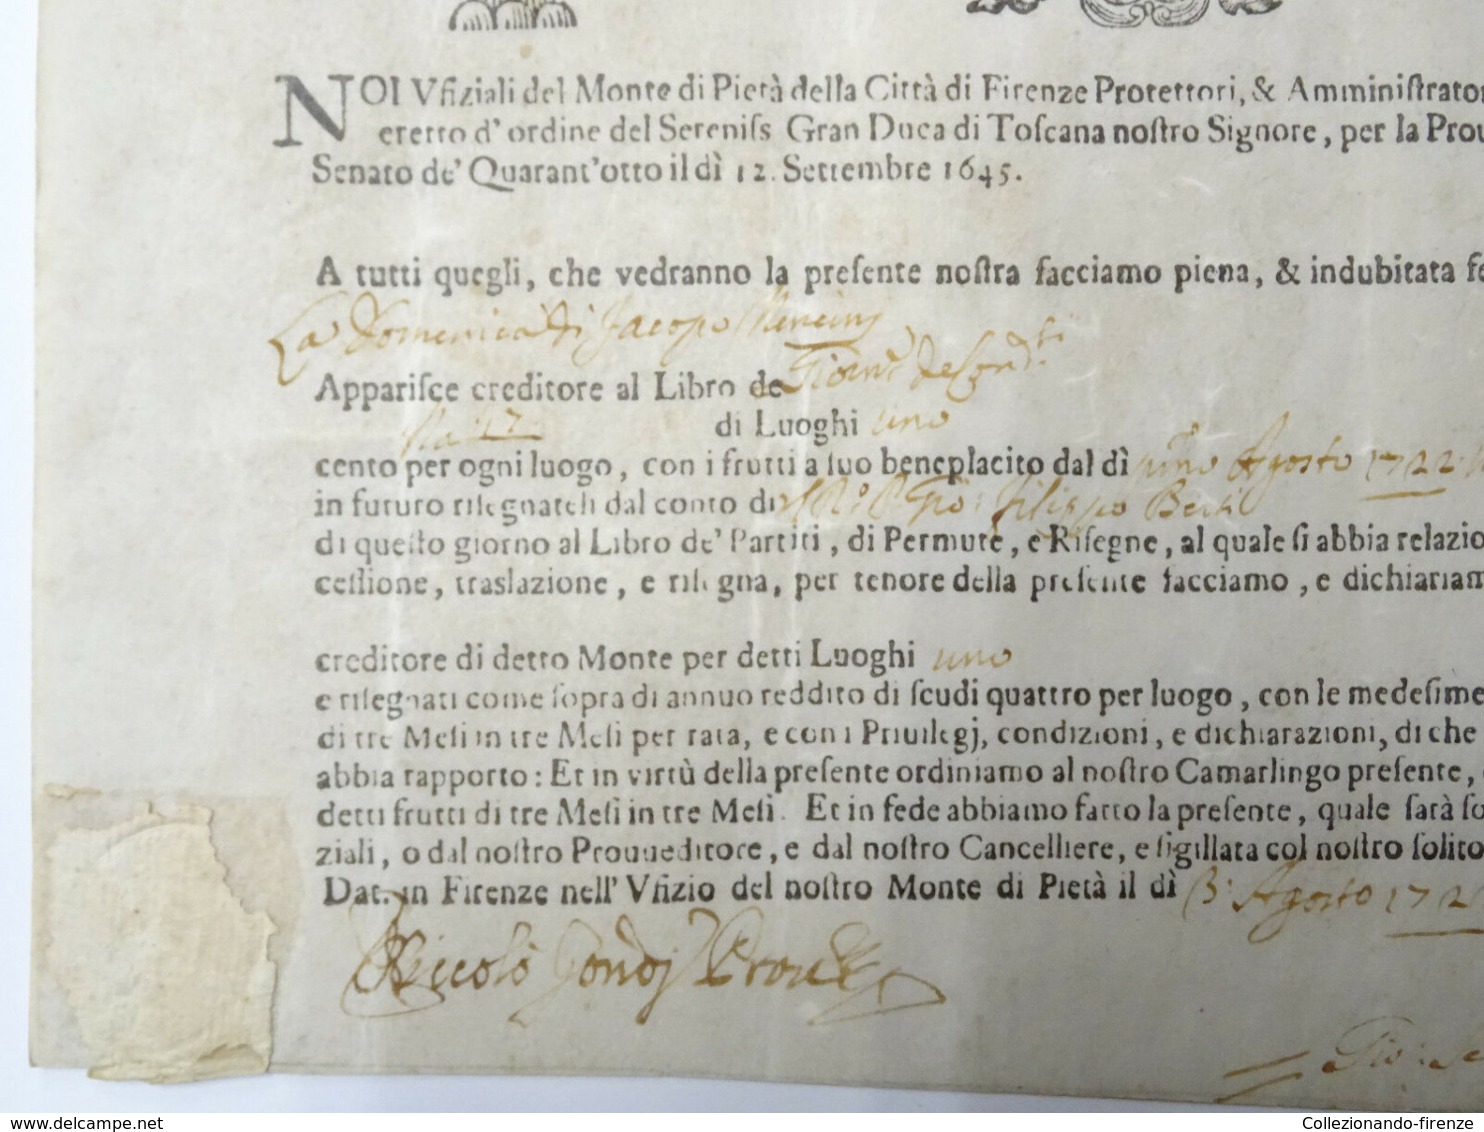 NOI Vfiziali del Monte di Pietà della Città di Firenze Protettori, & Amminiſtrator
eretto d' ordine del Sereniſs Gran Duca di Toſcana noſtro Signore, per la Prou
Senato de' Quarant'otto il dì 12. Settembre 1645.
A tutti quegli, che vedranno la preſente noſtra facciamo piena, & indubitata fe
La Domenica di Jacopo
Appariſce creditore al Libro de
17 di Luoghi uno
cento per ogni luogo, con i frutti a ſuo beneplacito dal dì pmo Agosto 1722
in futuro riſegnateli dal conto di Filippo Berti
di queſto giorno al Libro de' Partiti, di Permute, e Riſegne, al quale ſi abbia relazio
ceſſione, traslazione, e riſegna, per tenore della preſente facciamo, e dichiariam
creditore di detto Monte per detti Luoghi uno
e riſegnati come ſopra di annuo reddito di ſcudi quattro per luogo, con le medeſime
di tre Meſi in tre Meſi per rata, e con i Priuilegj, condizioni, e dichiarazioni, di che
abbia rapporto: Et in virtù della preſente ordiniamo al noſtro Camarlingo preſente,
detti frutti di tre Meſi in tre Meſi. Et in fede abbiamo fatto la preſente, quale ſarà ſo
ziali, o dal noſtro Prouueditore, e dal noſtro Cancelliere, e ſigillata col noſtro ſolito
Dat. in Firenze nell' Vfizio del noſtro Monte di Pietà il dì 3: Agosto 172
Niccolò Gondj
Collezionando-firenze